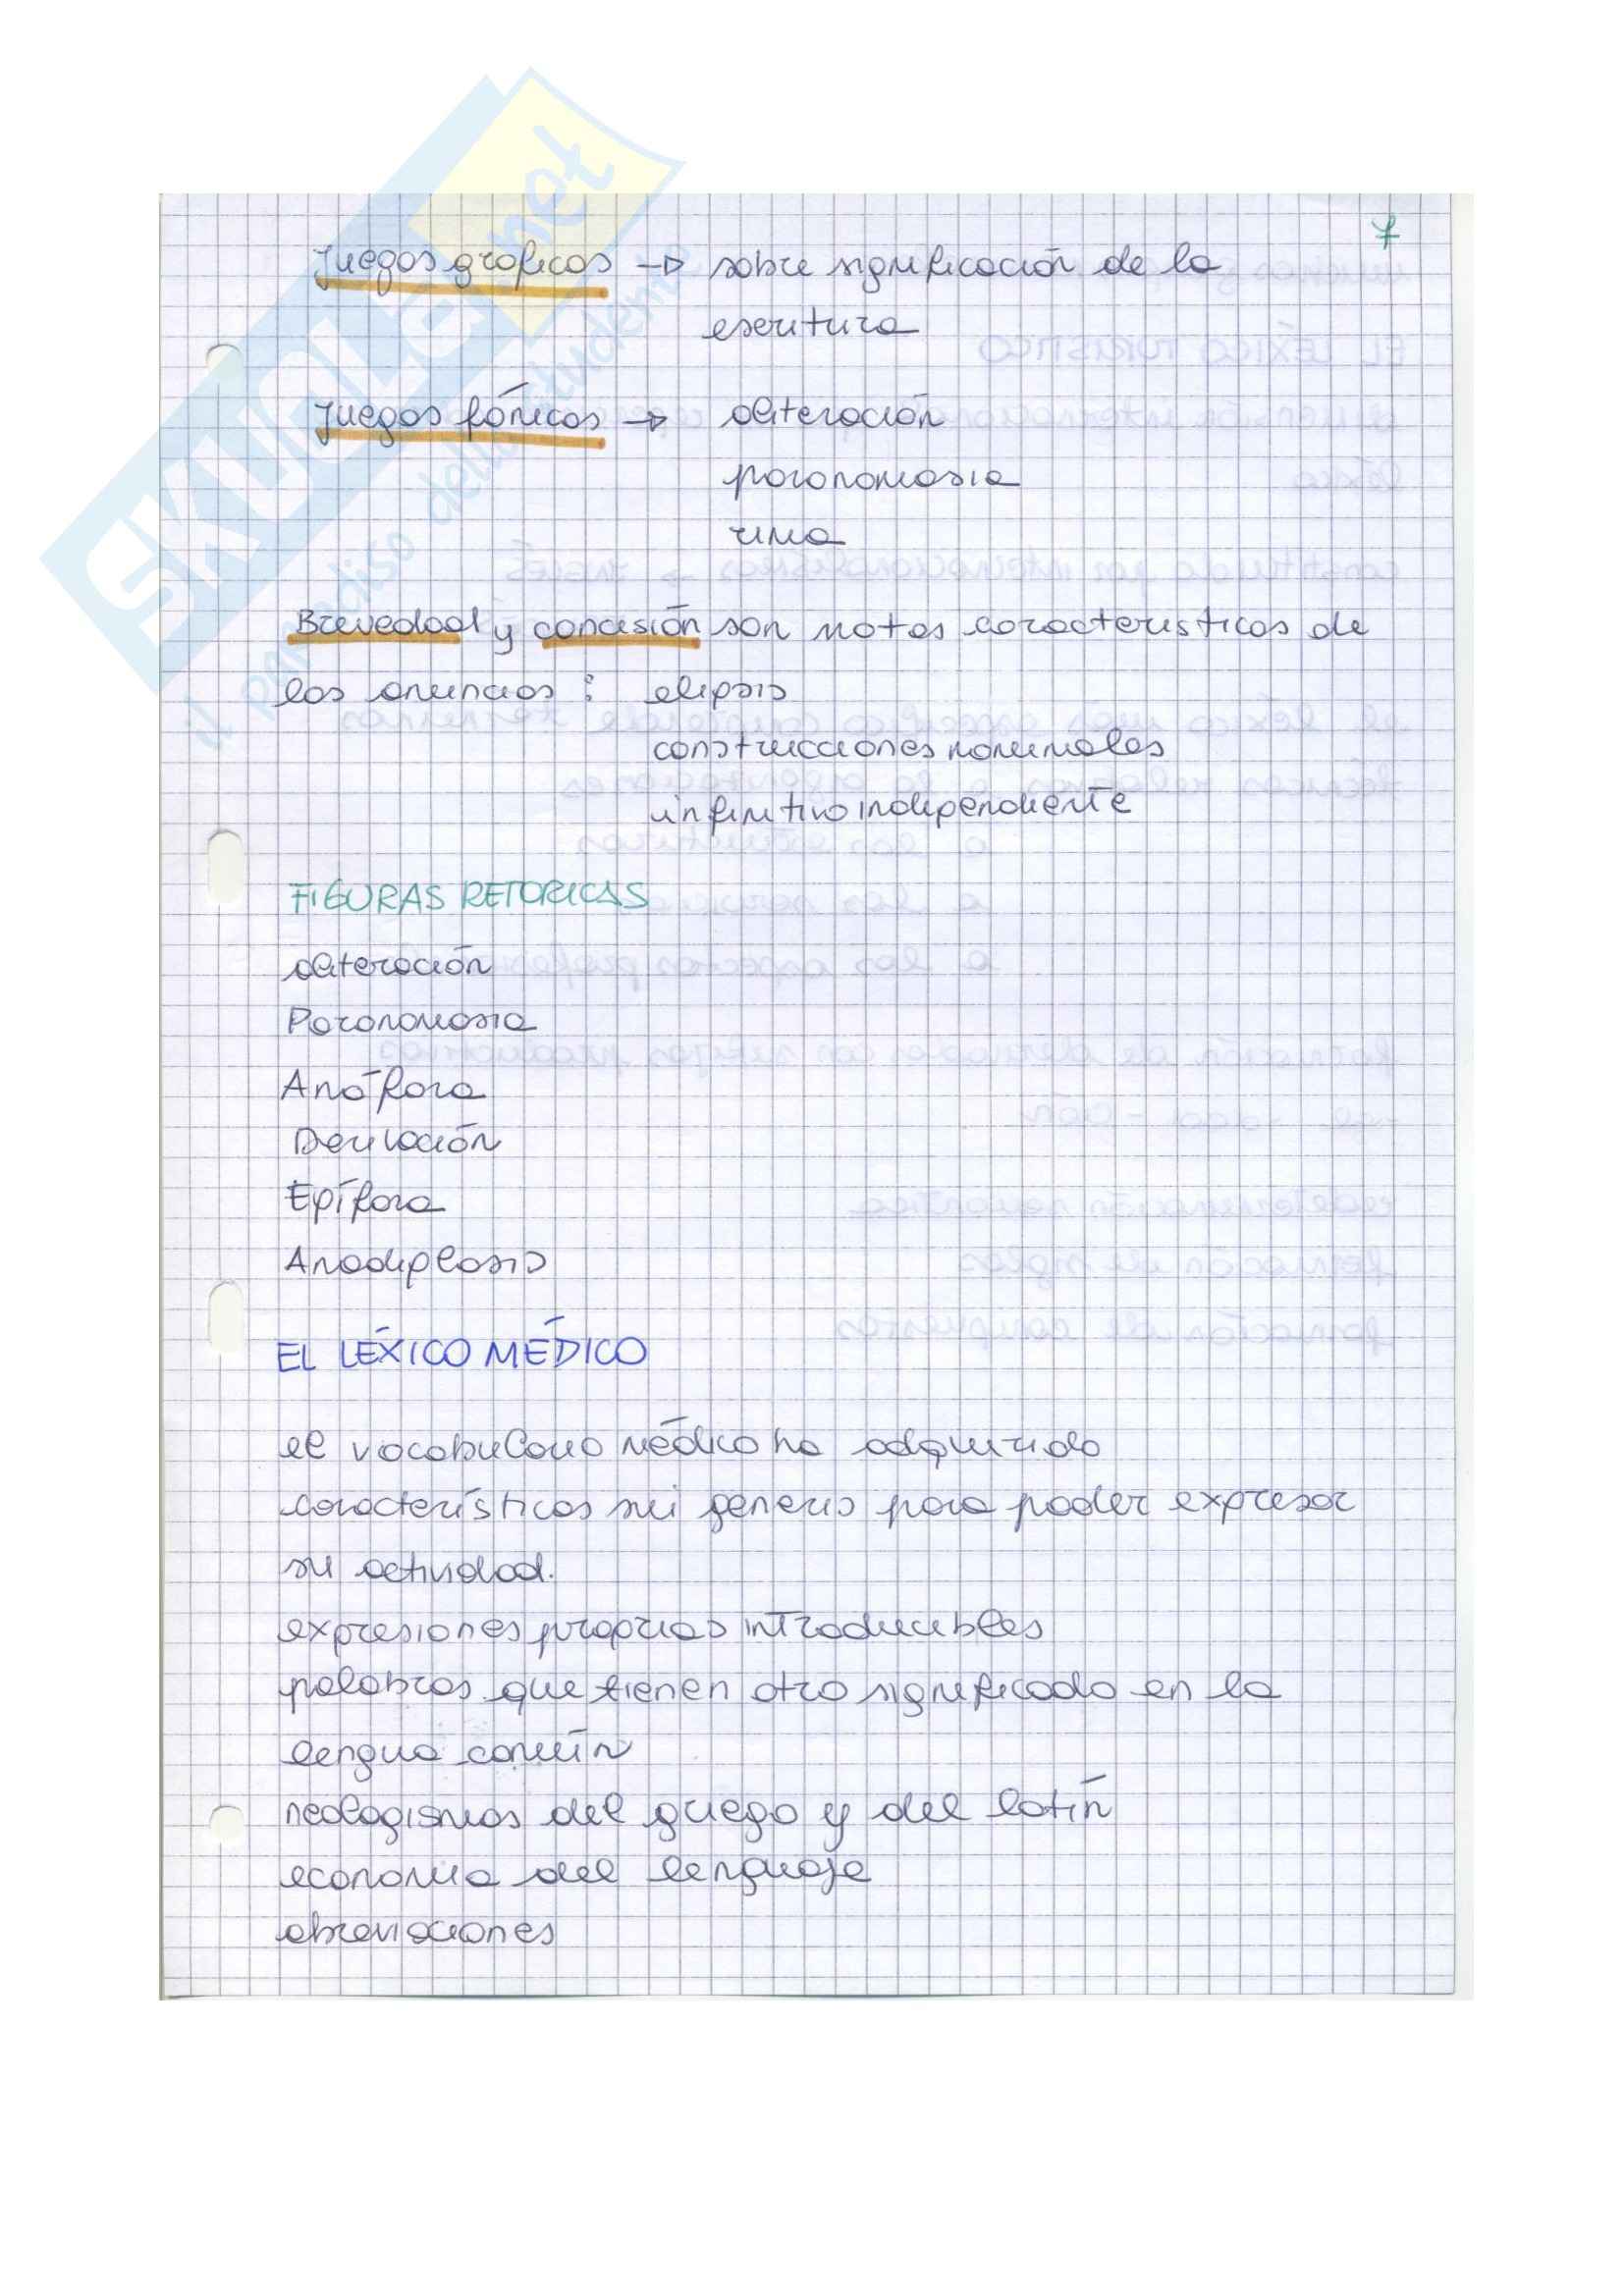 7
Juegos graficos → sobre significación de la
escritura
Juegos fónicos → aliteración
paronomasia
rima
Brevedad y concisión son notas caracteristicas de
los anuncios : elipsis
construcciones nominales
infinitivo independiente
FIGURAS RETORICAS
aliteración
Paronomasia
Anáfora
Derivación
Epífora
Anadiplosis
EL LÉXICO MÉDICO
el vocabulario médico ha adquirido
características sui generis para poder expresar
su actividad.
expresiones proprias introducibles
palabras que tienen otro significado en la
lengua común
neologismos del griego y del latín
economia del lenguaje
abreviaciones
SKUOLA.net
il paradiso dello studente